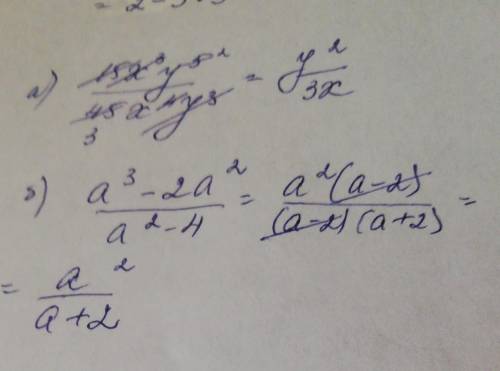 = 2 -
а) 15x³y⁵ ² / 45x⁴y³ 3 = y² / 3x
б) a³ - 2a² / a² - 4 = a²(a-2) / (a-2)(a+2) =
= a² / a+2